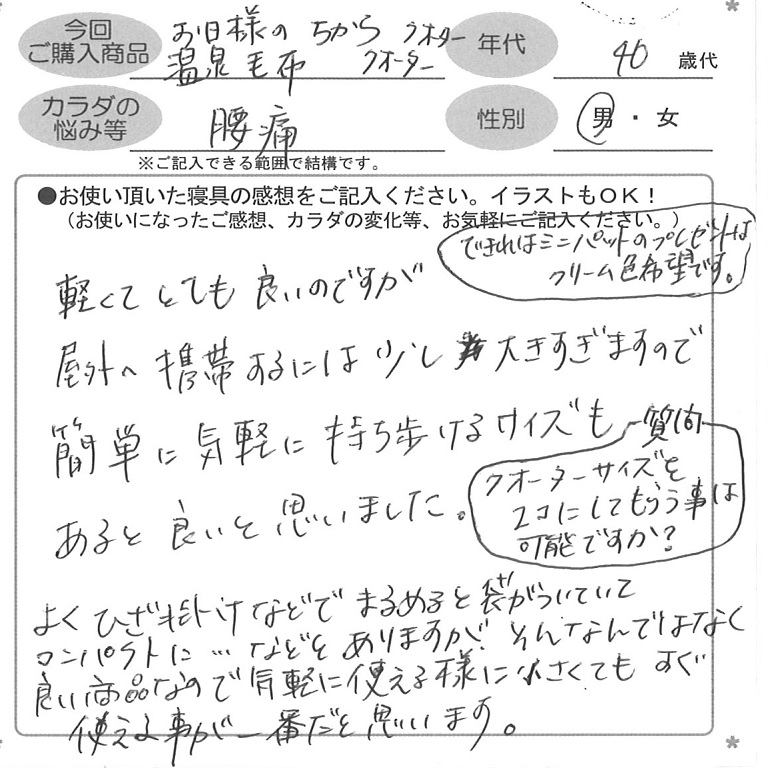 今回
ご購入商品
お日様のちから クオーター
温泉毛布 クオーター
年代
40 歳代
カラダの
悩み等
腰痛
性別
男・女
※ご記入できる範囲で結構です。
●お使い頂いた寝具の感想をご記入ください。イラストもOK!
(お使いになったご感想、カラダの変化等、お気軽にご記入ください。)
できればミニパットのプレゼントは
クリーム色希望です。
軽くてとても良いのですが
屋外へ携帯するには少し大きすぎますので
簡単に気軽に持ち歩けるサイズも
あると良いと思いました。
質問
クオーターサイズを
2コにしてもらう事は
可能ですか?
よくひざ掛けなどでまるめると袋がついていて
コンパクトに…などとありますが、そんなんではなく
良い商品なので気軽に使える様に小さくてもすぐ
使える事が一番だと思います。